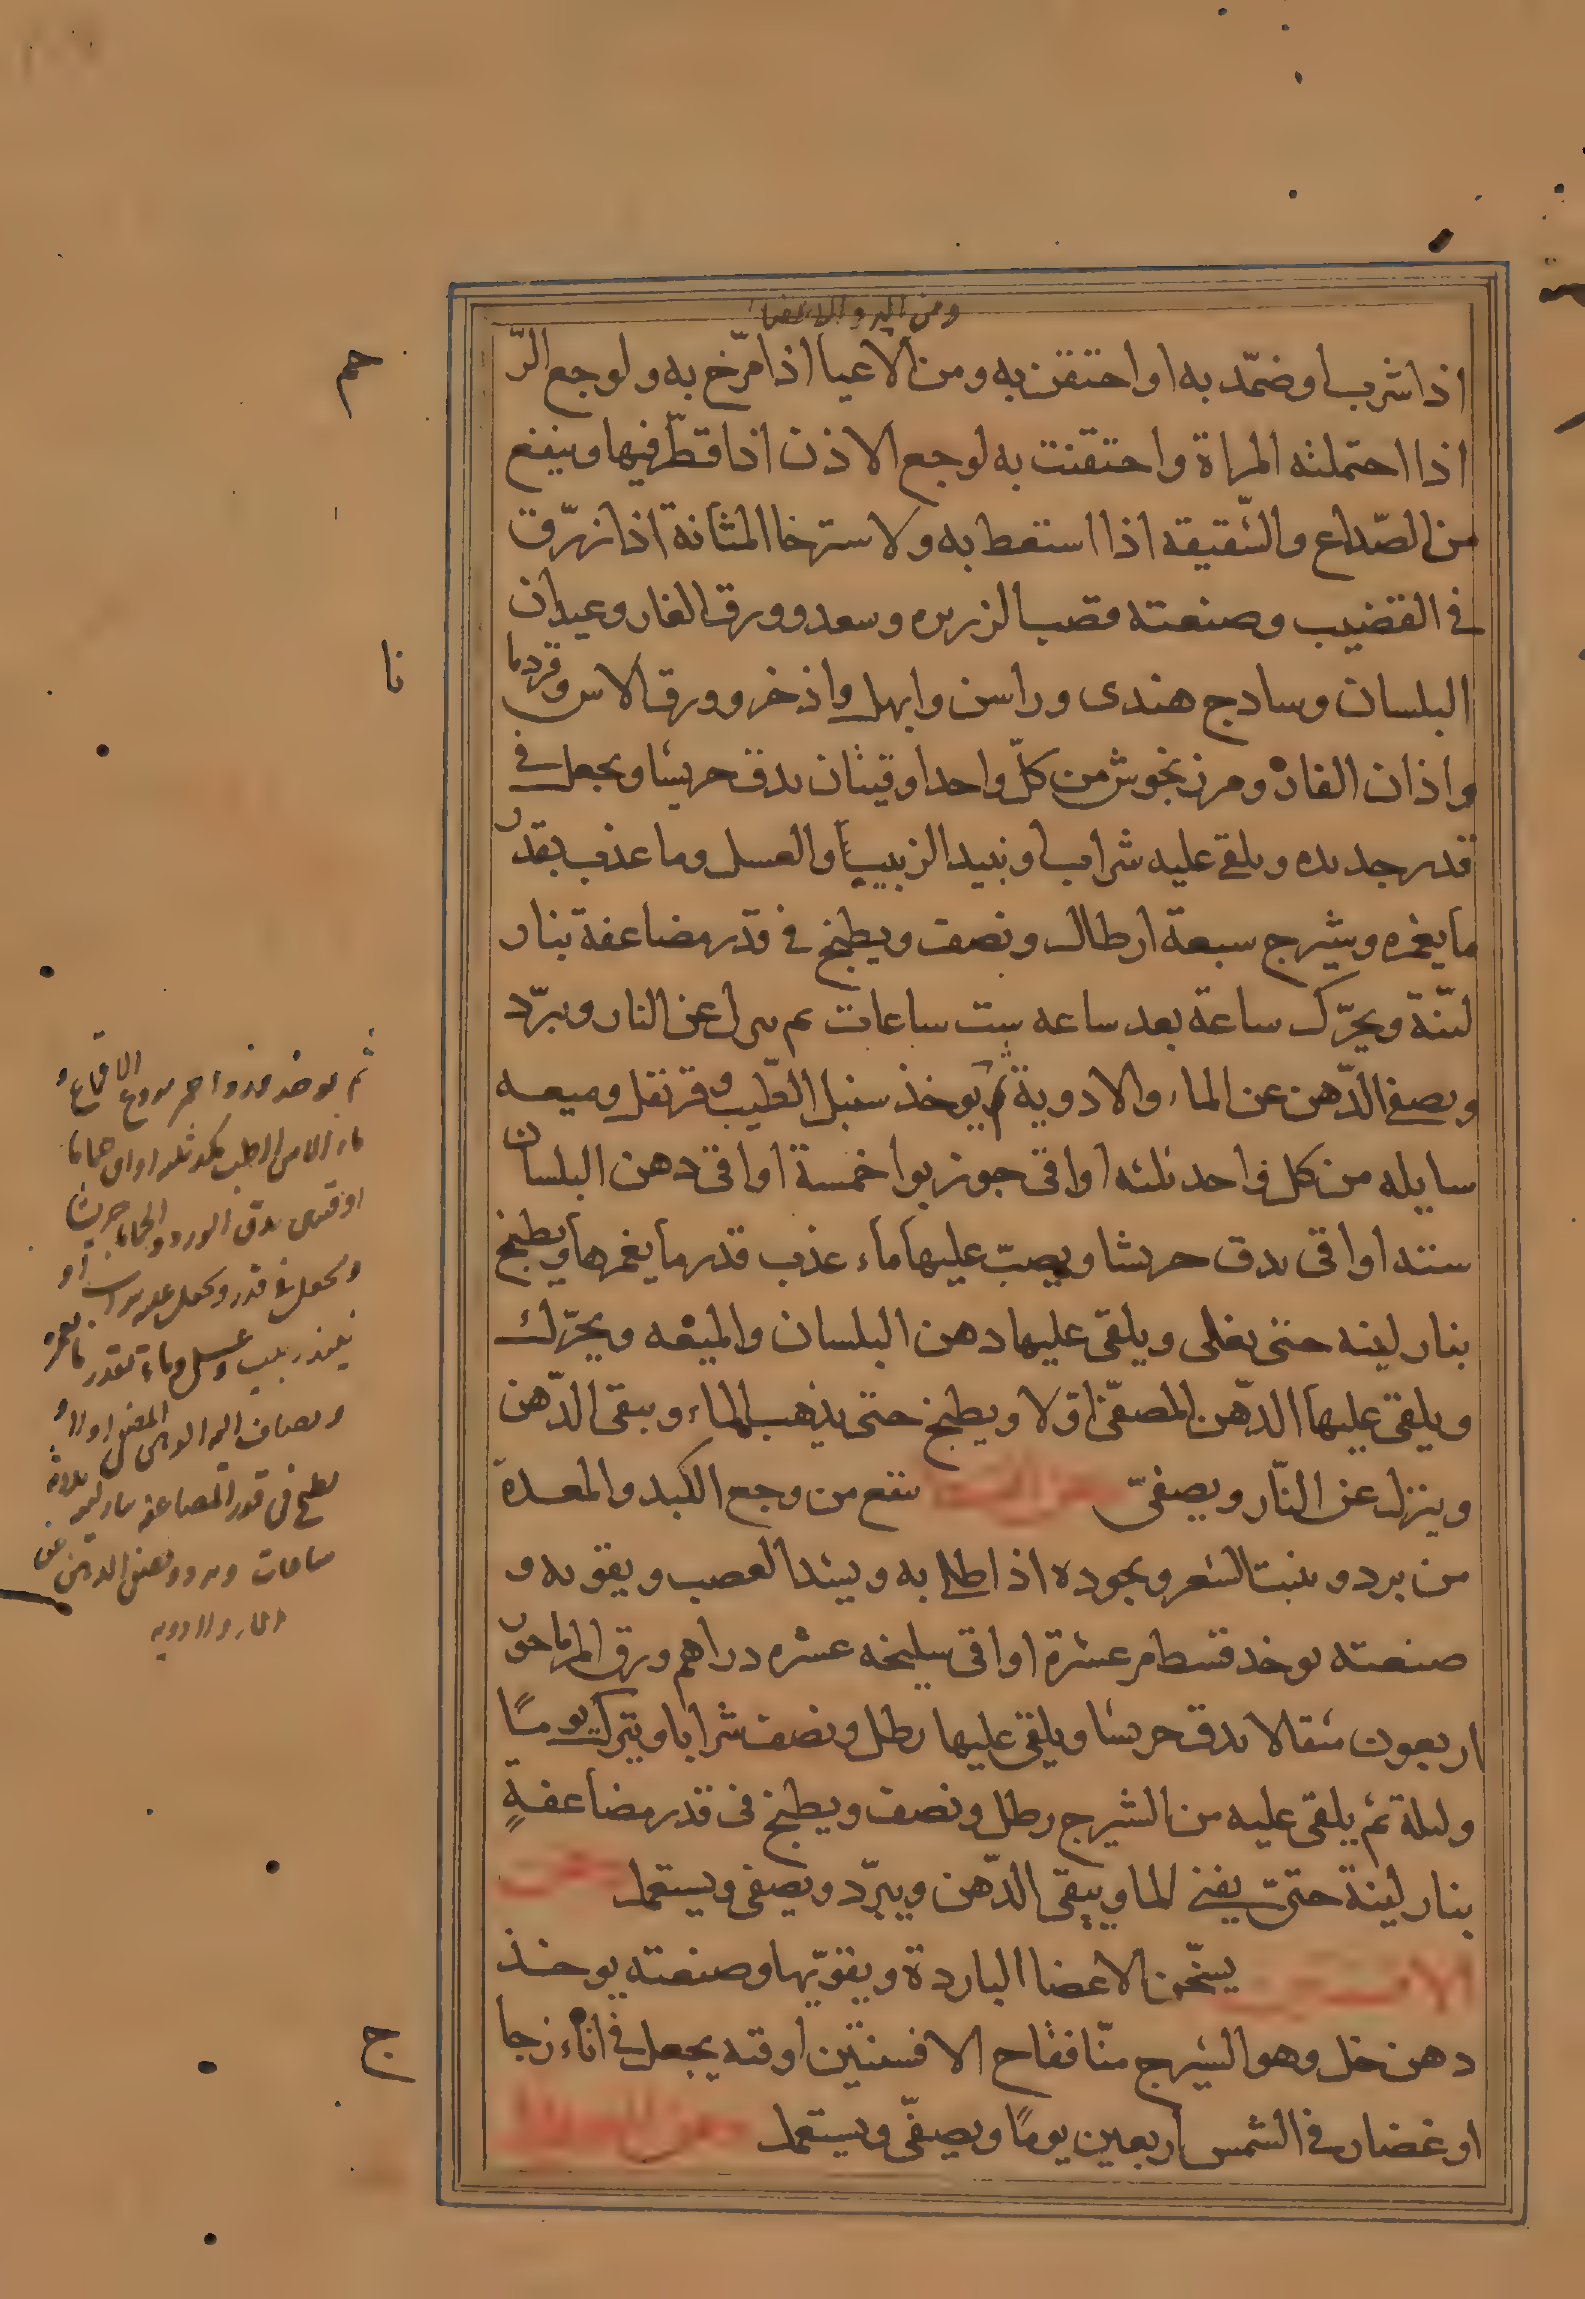 ومن البرد والاعضا
اذا شرب او ضمّد به او احتقن به ومن الاعيا اذا مرّخ به ولوجع الرّ
حم
اذا احتملته المراة واحتقنت به لوجع الاذن اذا قطّر فيها وينفع
من الصّداع والشّقيقه اذا استعط به ولاسترخا المثانة اذا زرّق
في القضيب وصنعته قصب الزريره وسعد وورق الغار وعيدان
البلسان وسادج هندى وراسن وابهل واذخر وورق الاس وقردما
نا
واذان الفار ومرزنجوش من كلّ واحد اوقيتان يدق جريشا ويجعل في
قدر جديده ويلقى عليه شراب او نبيد الزبيب او العسل وما عذب بقدر
ما يغمره وشيرج سبعة ارطال ونصف ويطبخ في قدر مضاعفة بنار
ليّنة ويحرّك ساعة بعد ساعه ست ساعات ثم ينزل عن النار ويبرّد
ويصفى الدّهن عن الماء والادوية ثم يوخذ سنبل الطّيب وقرنفل وميعه
سايله من كل واحد ثلثه اواقى جوزبوا خمسة اواقى دهن البلسان
ستة اواقى يدق جريشا ويصبّ عليها ماء عذب قدر ما يغمرها ويطبخ
بنار لينه حتى يغلى ويلقى عليها دهن البلسان والميعه ويحرّك
ويلقى عليها الدّهن المصفّى اوّلا ويطبخ حتى يذهب الماء ويبقى الدّهن
وينزل عن النّار ويصفىّ دهن ينفع من وجع الكبد والمعدة
من برد وينبت الشعر ويجوده اذا طلى به ويشد العصب ويقويه و
صنعته يوخد قسط مر عشرة اواقى سليخه عشره دراهم ورق المرماحوز
اربعون مثقالا يدق جريشا ويلقى عليها رطل ونصف شرابا ويترك يومًا
وليلة ثم يلقى عليه من الشيرج رطل ونصف ويطبخ في قدر مضاعفةٍ
بنار لينة حتىّ يفنى الما ويبقى الدّهن ويبرّد ويصفى ويستعمل دهن
الافسنتين يسخّن الاعضا الباردة ويقوّيها وصنعته يوخذ
دهن خل وهو الشيرج منّا فقاح الافسنتين اوقيه يجعل في اناء زجا
ج
او غضار في الشمس اربعين يومًا ويصفّى ويستعمل دهن
ثم يوخد ورد احمر منزوع الاقماع و
اوقيتين يدق الورد والحماما جريشا
ويجعل في قدر ويجعل عليه شراب او
نبيذ زبيب وعسل وماء بقدر ما يغمره
ويضاف اليه الدهن المصفى اولا و
يطبخ في قدر المضاعفه بنار لينه ثلاثة
ساعات ويبرد ويصفى الدهن عن
الماء والادويه